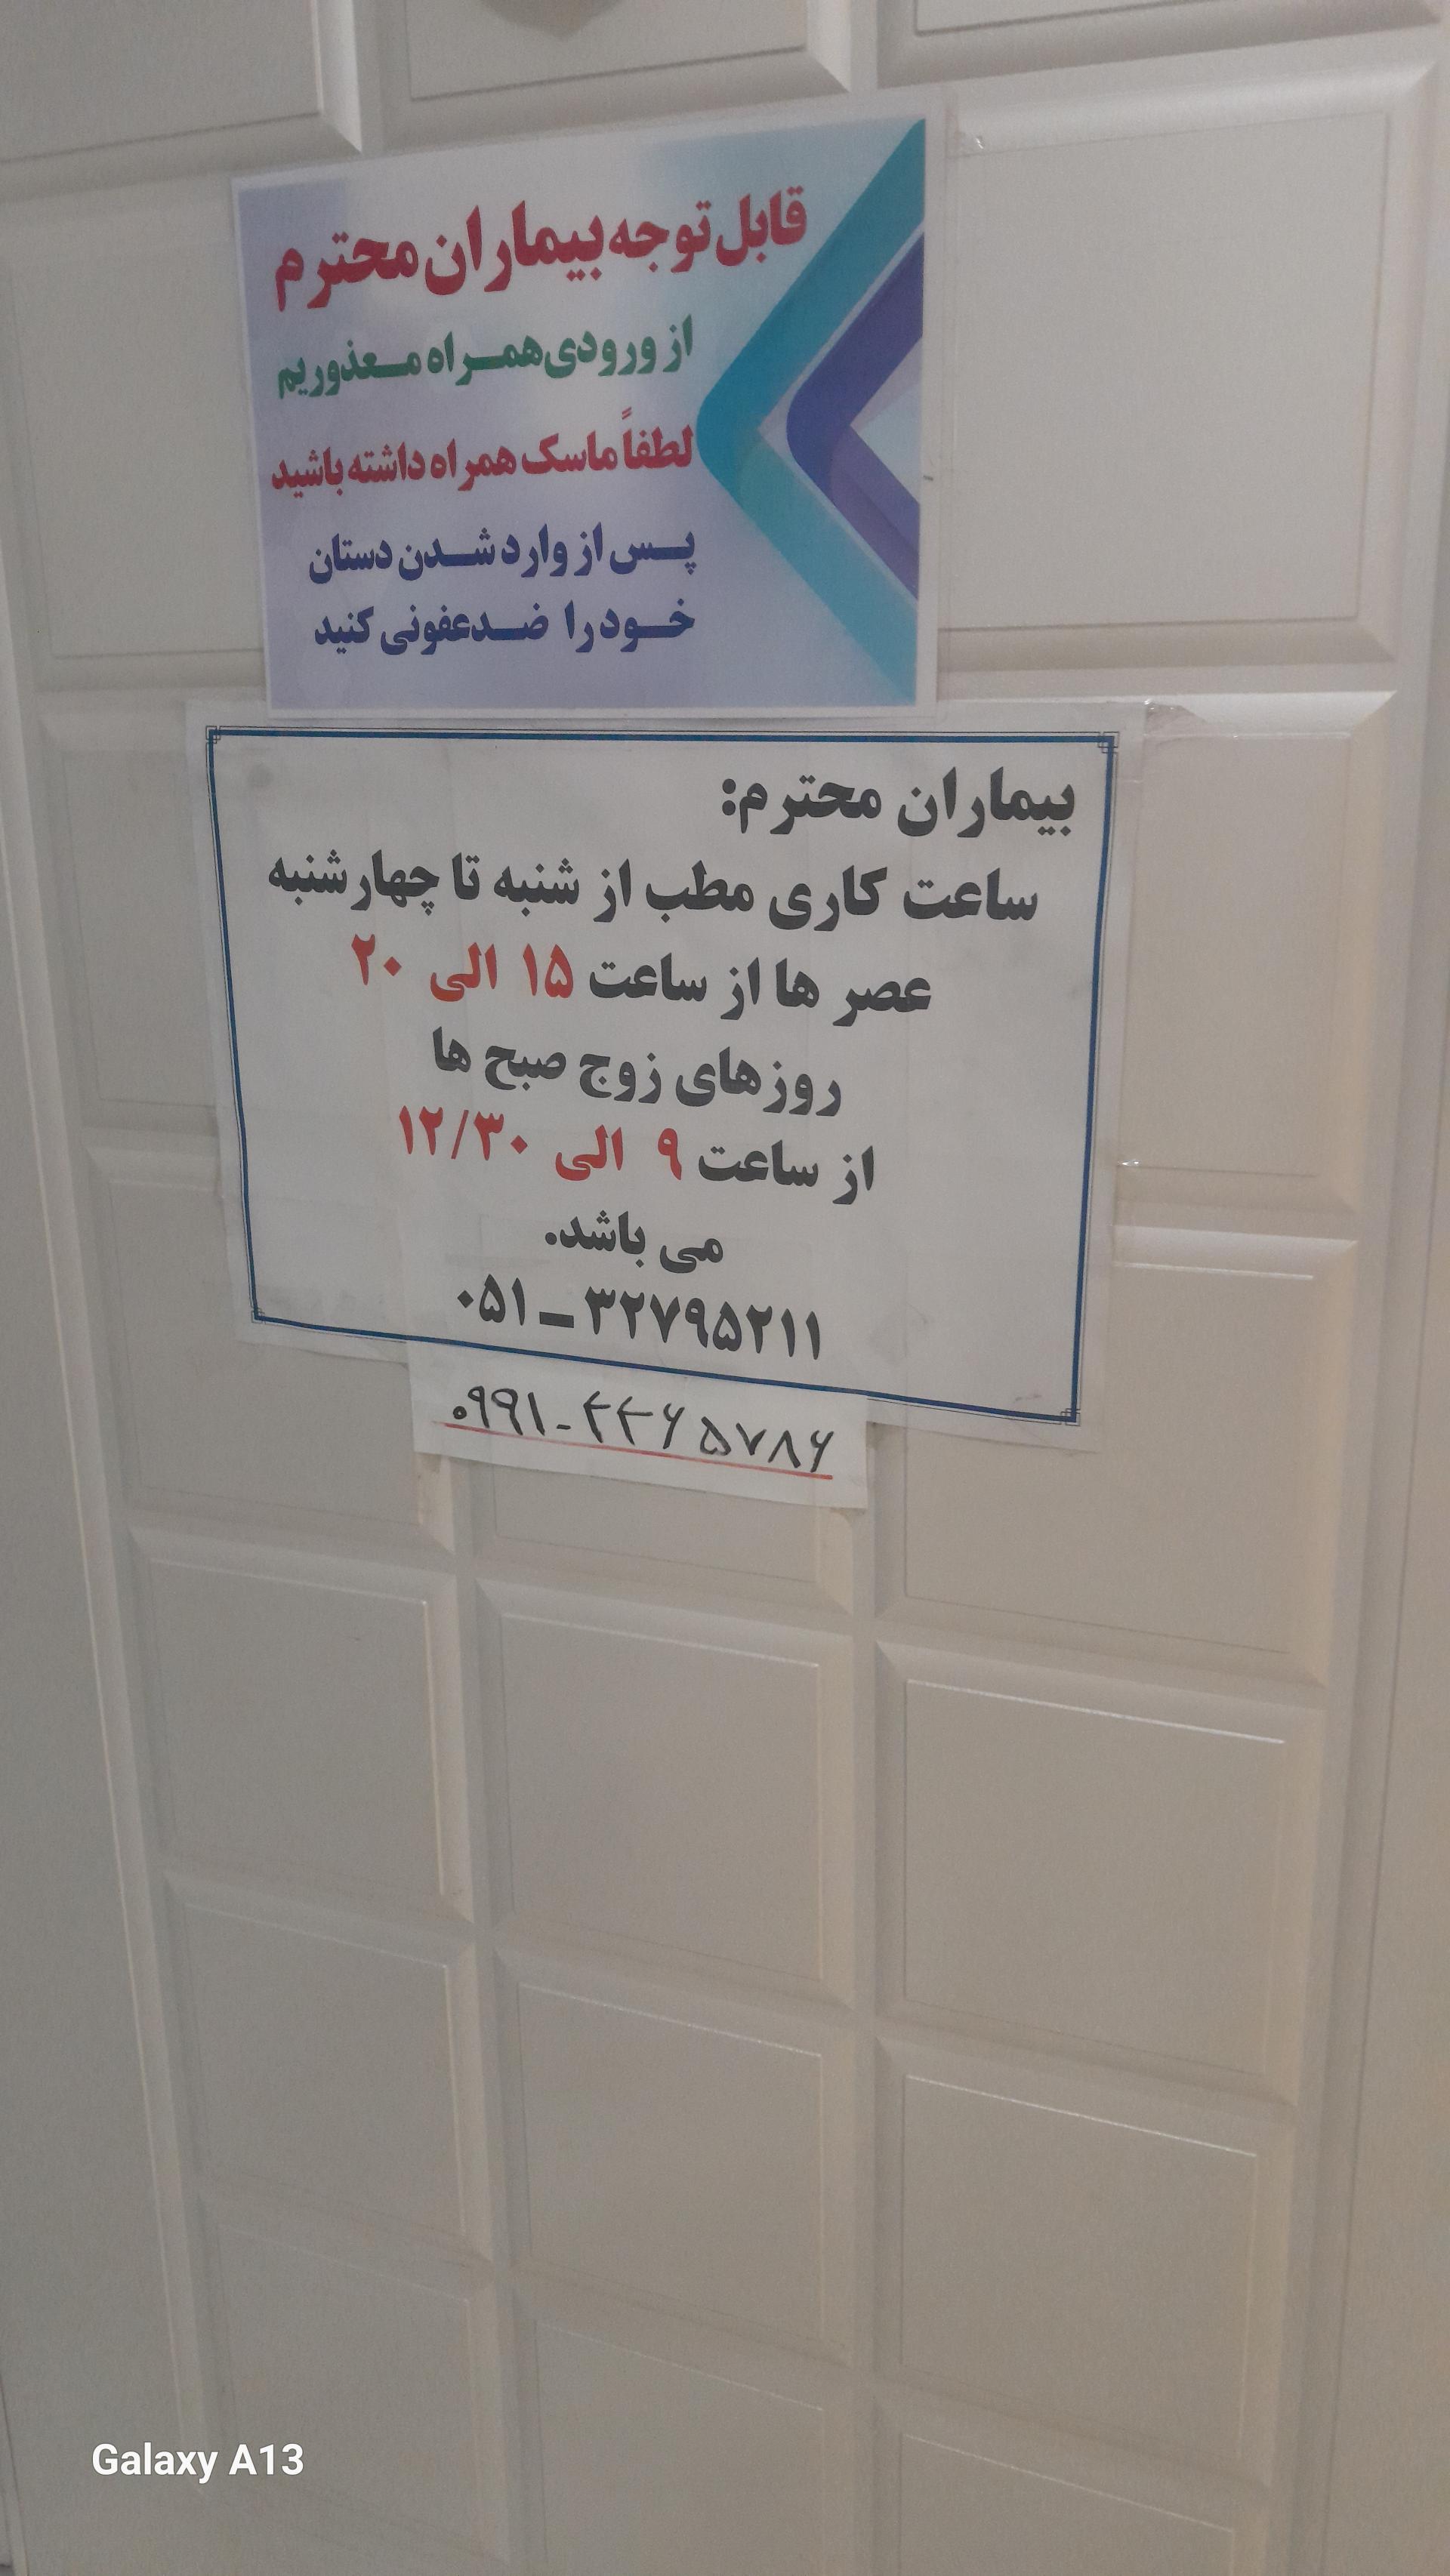 قابل توجه بیماران محترم
از ورودی همراه معذوریم
لطفاً ماسک همراه داشته باشید
پس از وارد شدن دستان
خود را ضدعفونی کنید
بیماران محترم:
ساعت کاری مطب از شنبه تا چهارشنبه
عصر ها از ساعت ۱۵ الی ۲۰
روزهای زوج صبح ها
از ساعت ۹ الی ۱۲/۳۰
می باشد.
۰۵۱ - ۳۲۷۹۵۲۱۱
۰۹۹۱-۴۴۶۵۷۸۶
Galaxy A13